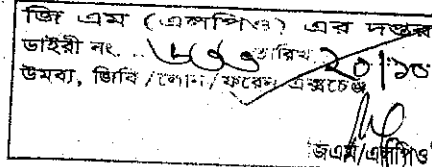 জি এম (এলপিও) এর দপ্তর
ডাইরী নং. .. ৮৩৩ তারিখ ২০/১০
উমব্য, জিবি / লোন / ফরেন এক্সচেঞ্জ
জিএম/এলপিও